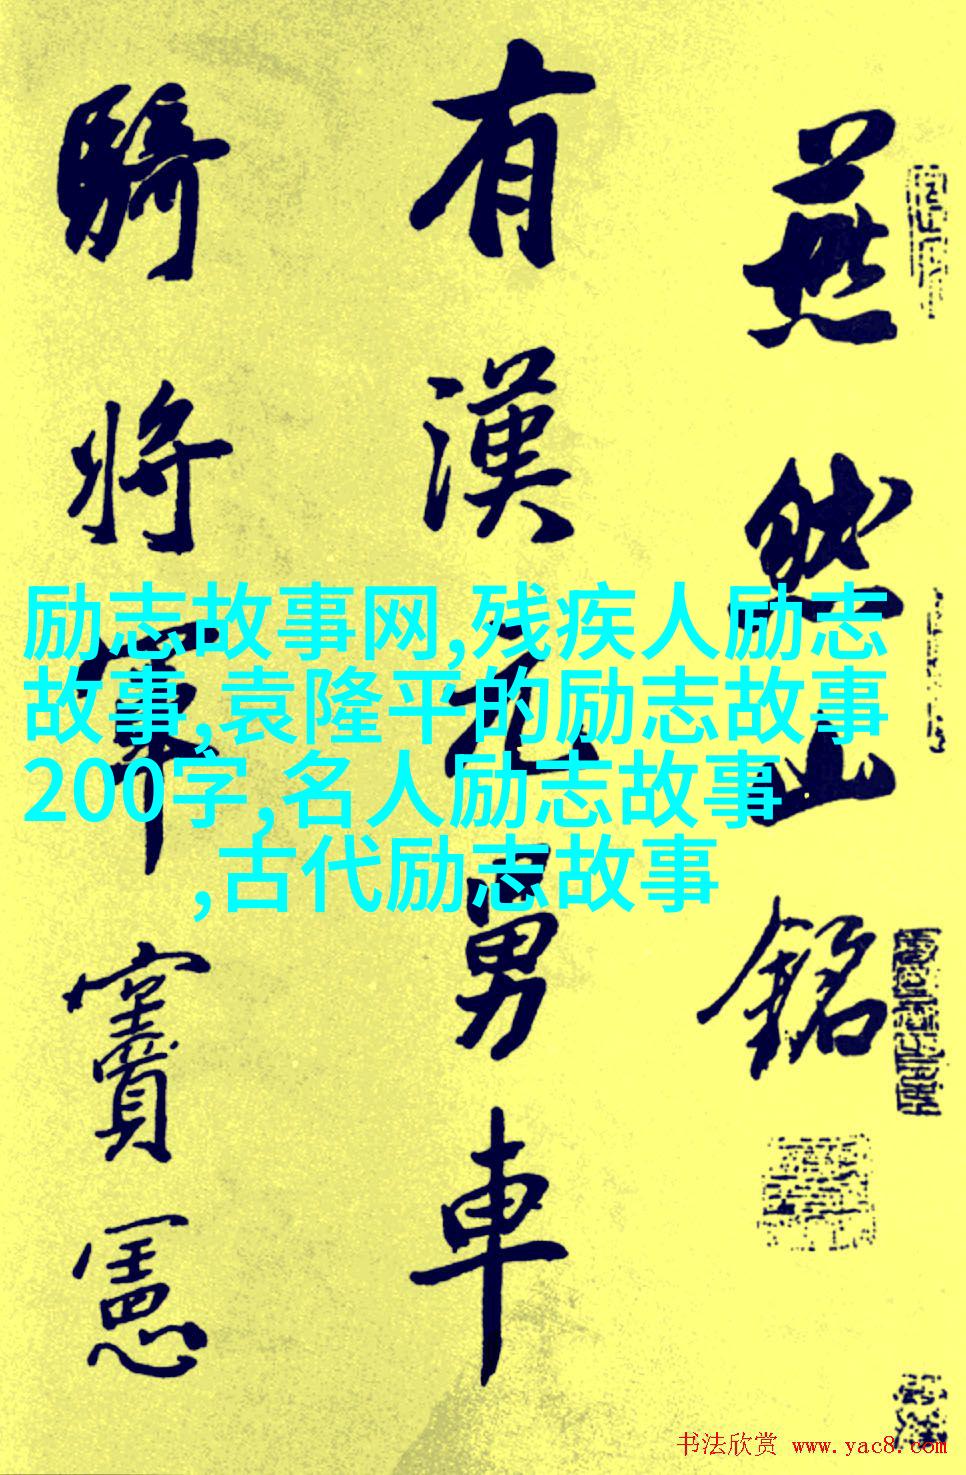 燕然山銘
有漢元舅車
騎將軍竇憲
励志故事网,残疾人励志
故事,袁隆平的励志故事
200字,名人励志故事
,古代励志故事
书法欣赏 www.yac8.com